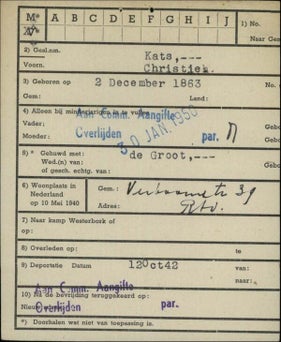 M* A B C D E F G H I J 1) No.
V* Naar Ge
2) Gesl.nm. Kats,---
Voorn. Christien.
3) Geboren op 2 December 1863 No.
Gem: Land: Gebo
4) Alleen bij minderjarigen in te vullen
Aan Comm. Aangifte
Vader: Gebo
Overlijden 30 JAN. 1950 par.
Moeder: Gebo
5) * Gehuwd met: de Groot,---
Wed.(n) van: Gebo
of gesch. echtg. van:
6) Woonplaats in Gem.:
Nederland 39
op 10 Mei 1940 Rtd.
7) Naar kamp Westerbork of
8) Overleden op: te
9) Deportatie Datum 12Oct42 van:
naar:
Aan Comm. Aangifte
10) Na de bevrijding teruggekeerd op:
Overlijden par.
*) Doorhalen wat niet van toepassing is.